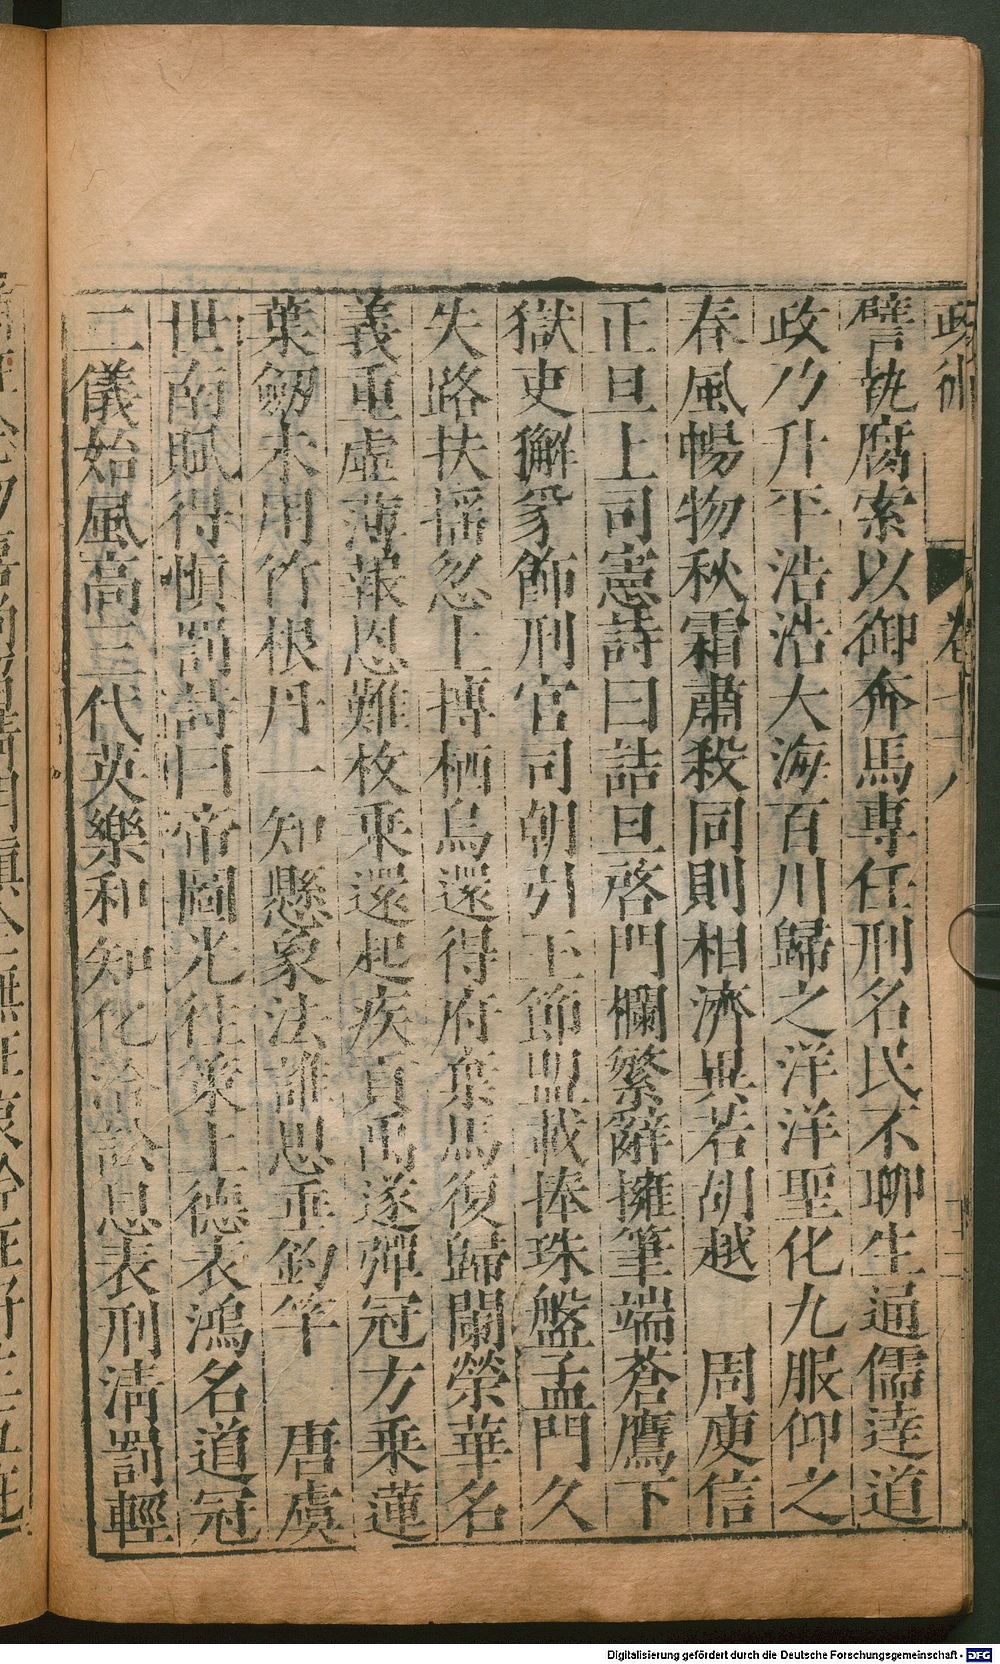 政術 卷十八
譬執腐索以御奔馬專任刑名民不聊生通儒達道
政乃升平浩浩大海百川歸之洋洋聖化九服仰之
春風暢物秋霜肅殺同則相濟異若胡越 周庾信
正旦上司憲詩曰詰旦啓門欄繁辭擁筆端蒼鷹下
獄吏獬豸飾刑官司朝引玉節盟載捧珠盤孟門久
失路扶搖忽上搏栖烏還得府棄馬復歸闌榮華名
義重虛薄報恩難枚乘還起疾貢禹遂彈冠方乗蓮
葉劒未用竹根丹一知懸象法誰思垂釣竿 唐虞
世南賦得愼罰詩曰帝圖光往策上德表鴻名道冠
二儀始風高三代英樂和知化洽訟息表刑淸罰輕
Digitalisierung gefördert durch die Deutsche Forschungsgemeinschaft - DFG